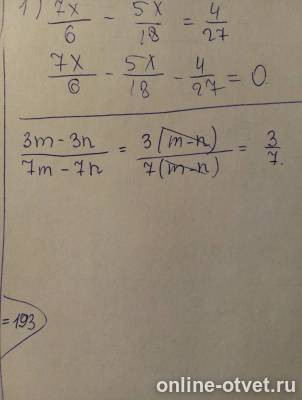 1) 7x/6 - 5x/18 = 4/27
7x/6 - 5x/18 - 4/27 = 0
3m-3n/7m-7n = 3(m-n)/7(m-n) = 3/7.
=193
online-otvet.ru